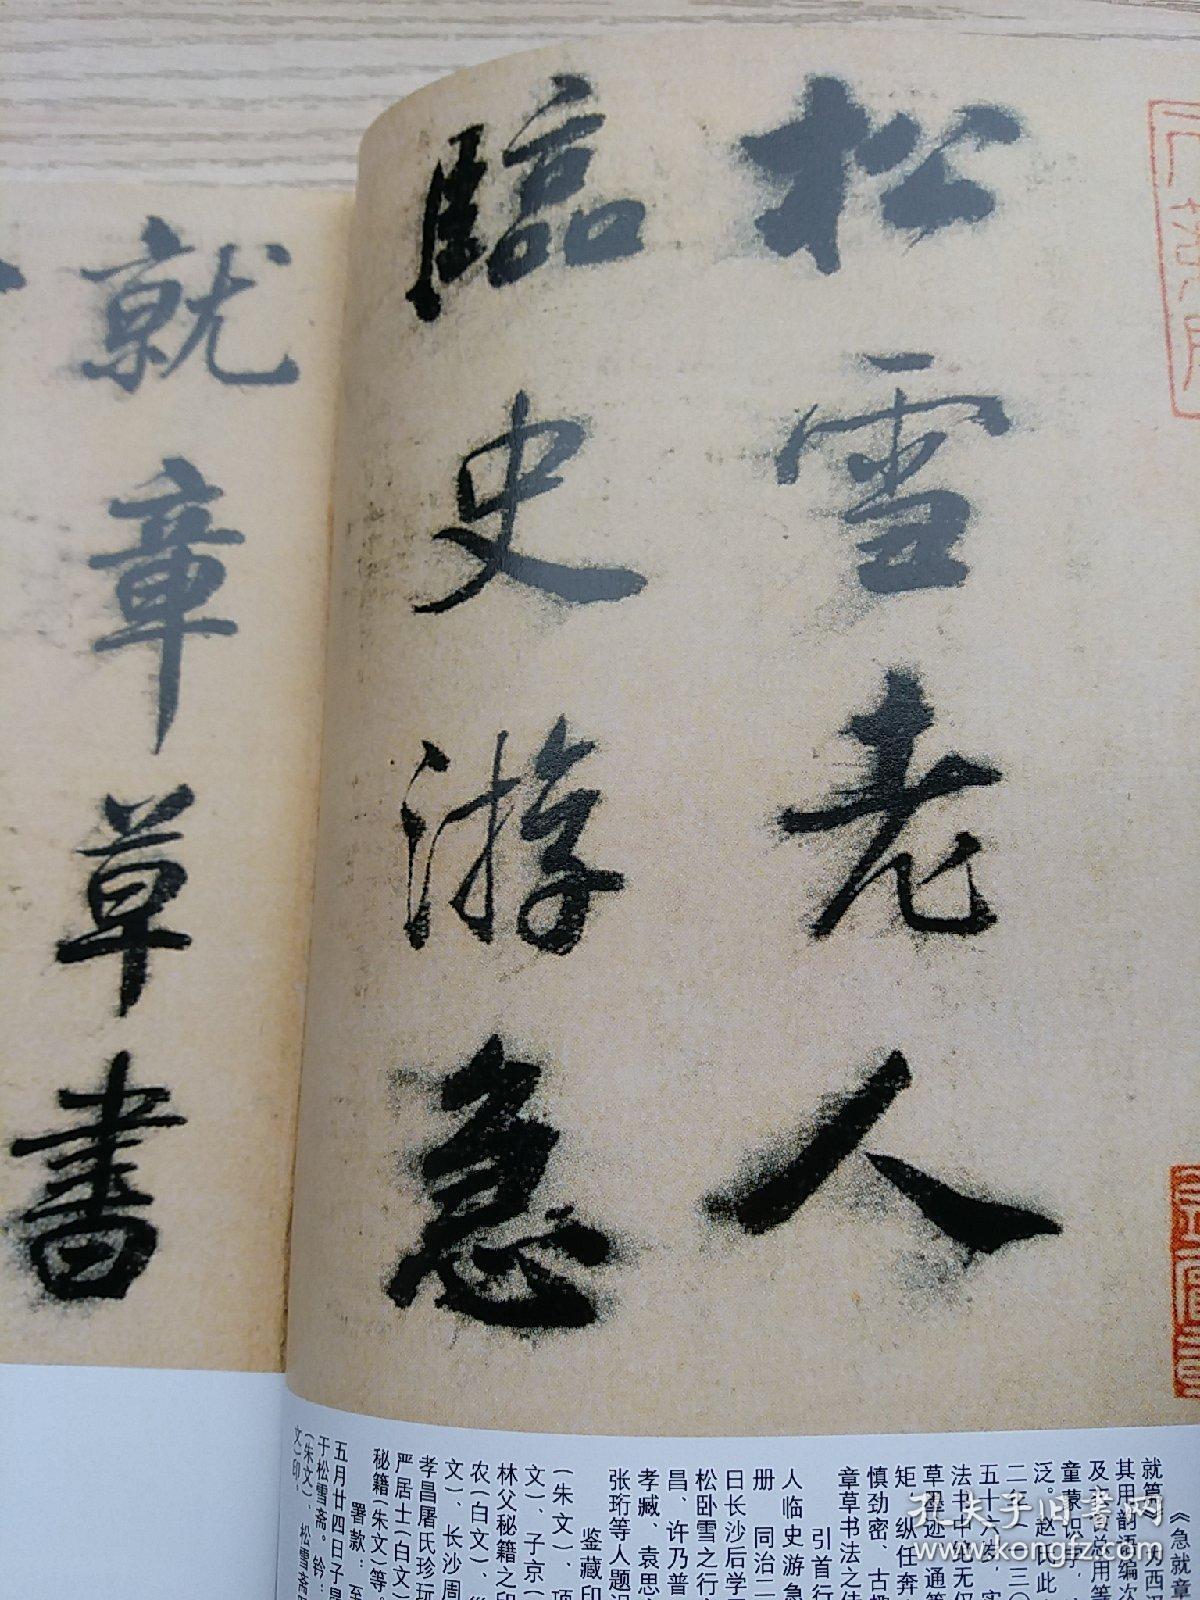 松雪老人
臨史游急
就章草書
《急就章
就篇》为西汉
其用韵语编次
童蒙识字，
泛。赵氏此
二年（一三〇
五十六岁，实
法书中绝无仅
草墨迹，通篇
矩，纵任奔
慎劲密、古
章草书法之佳
引首行
人临史游急
册 同治二
日长沙后学
松卧雪之行
昌、许乃普
孝臧、袁思
张珩等人题
鉴藏印
（朱文）、项
文）、子京（
林父秘籍之印
农（白文）、
文）、长沙周
孝昌屠氏珍玩
严居士（白文）
秘籍（朱文）等。
署款：至
五月廿四日子
于松雪斋。钤：
（朱文）、松雪斋
文）印。
孔夫子旧书网
www.kongfz.com